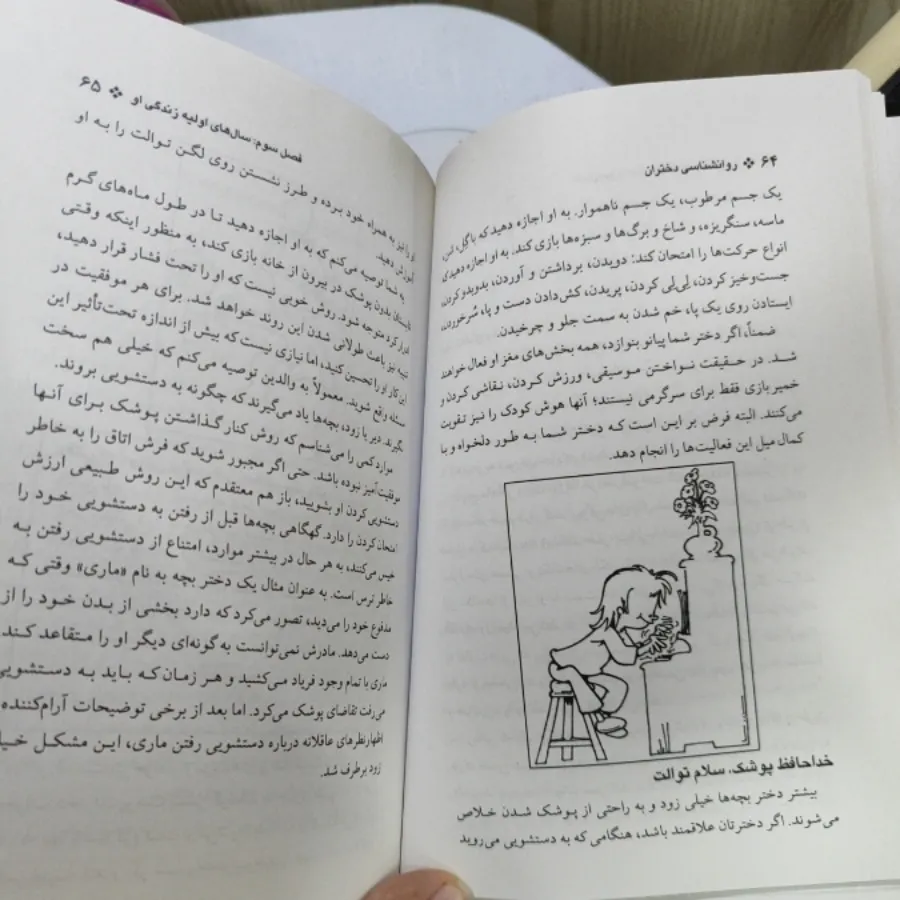 ۶۴ ❖ روانشناسی دختران
یک جسم مرطوب، یک جسم ناهموار. به او اجازه دهید که با گل،
ماسه، سنگریزه، و شاخ و برگ‌ها و سبزه‌ها بازی کند. به او اجازه دهید که
انواع حرکت‌ها را امتحان کند: دویدن، برداشتن و آوردن، بدوبدو کردن،
جست‌وخیز کردن، لی‌لی کردن، پریدن، کش‌دادن دست و پا، سُر خوردن،
ایستادن روی یک پا، خم شدن به سمت جلو و چرخیدن.
ضمناً، اگر دختر شما پیانو بنوازد، همه بخش‌های مغز او فعال خواهند
شد. در حقیقت نواختن موسیقی، ورزش کردن، نقاشی کردن و
خمیربازی فقط برای سرگرمی نیستند؛ آنها هوش کودک را نیز تقویت
می‌کنند. البته فرض بر این است که دختر شما به طور دلخواه و با
کمال میل این فعالیت‌ها را انجام دهد.
خداحافظ پوشک، سلام توالت
بیشتر دختر بچه‌ها خیلی زود و به راحتی از پوشک شدن خلاص
می‌شوند. اگر دخترتان علاقمند باشد، هنگامی که به دستشویی می‌روید
فصل سوم: سال‌های اولیه زندگی او ❖ ۶۵
او را نیز به همراه خود برده و طرز نشستن روی لگن توالت را به او
آموزش دهید.
به شما توصیه می‌کنم که به او اجازه دهید تا در طول ماه‌های گرم
تابستان بدون پوشک در بیرون از خانه بازی کند، به منظور اینکه وقتی
ادرار کرد متوجه شود. روش خوبی نیست که او را تحت فشار قرار دهید،
تنبیه نیز باعث طولانی شدن این روند خواهد شد. برای هر موفقیت در
این کار او را تحسین کنید، اما نیازی نیست که بیش از اندازه تحت‌تأثیر این
مسئله واقع شوید. معمولاً به والدین توصیه می‌کنم که خیلی هم سخت
نگیرند. دیر یا زود، بچه‌ها یاد می‌گیرند که چگونه به دستشویی بروند.
موارد کمی را می‌شناسم که روش کنار گذاشتن پوشک برای آنها
موفقیت‌آمیز نبوده باشد. حتی اگر مجبور شوید که فرش اتاق را به خاطر
دستشویی کردن او بشویید، باز هم معتقدم که این روش طبیعی ارزش
امتحان کردن را دارد. گهگاهی بچه‌ها قبل از رفتن به دستشویی خود را
خیس می‌کنند، به هر حال در بیشتر موارد، امتناع از دستشویی رفتن به
خاطر ترس است. به عنوان مثال یک دختر بچه به نام «ماری» وقتی که
مدفوع خود را می‌دید، تصور می‌کرد که دارد بخشی از بدن خود را از
دست می‌دهد. مادرش نمی‌توانست به گونه‌ای دیگر او را متقاعد کند.
ماری با تمام وجود فریاد می‌کشید و هر زمان که باید به دستشویی
می‌رفت تقاضای پوشک می‌کرد. اما بعد از برخی توضیحات آرام‌کننده
اظهارنظرهای عاقلانه درباره دستشویی رفتن ماری، این مشکل
زود برطرف شد.